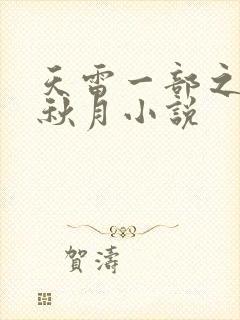 天雷一部之
秋月小說
賀濤